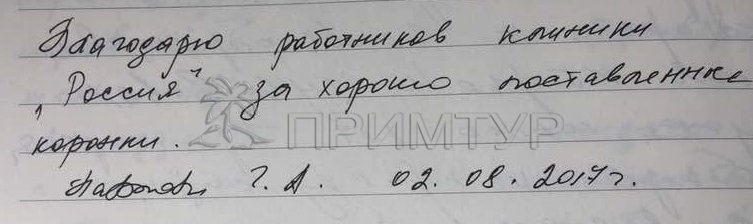 Благодарю работников клиники
"Россия" за хорошо поставленные
коронки.
Г. А. 02. 08. 2017г.
ПРИМТУР